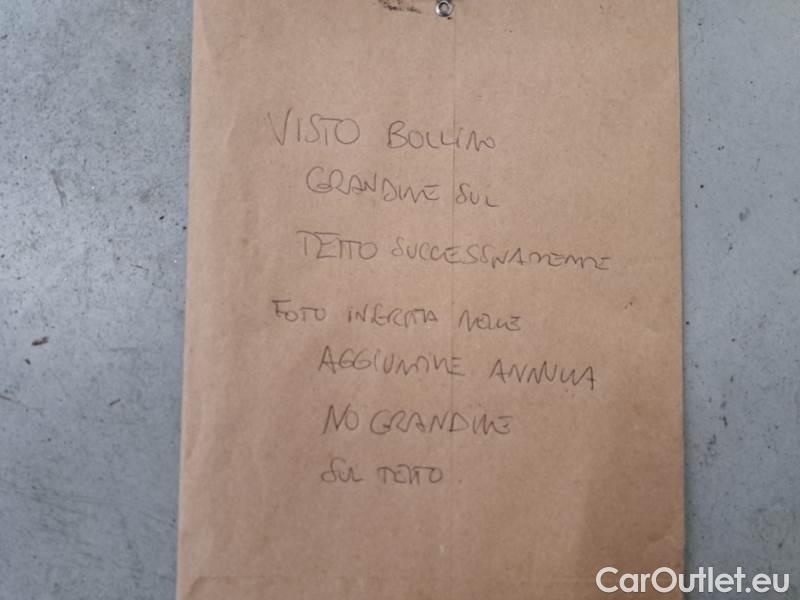 VISTO BOLLINO
GRANDINE SUL
TETTO SUCCESSIVAMENTE
FOTO INSERITA NELLE
AGGIUNTIVE ANNULLA
NO GRANDINE
SUL TETTO.
CarOutlet.eu